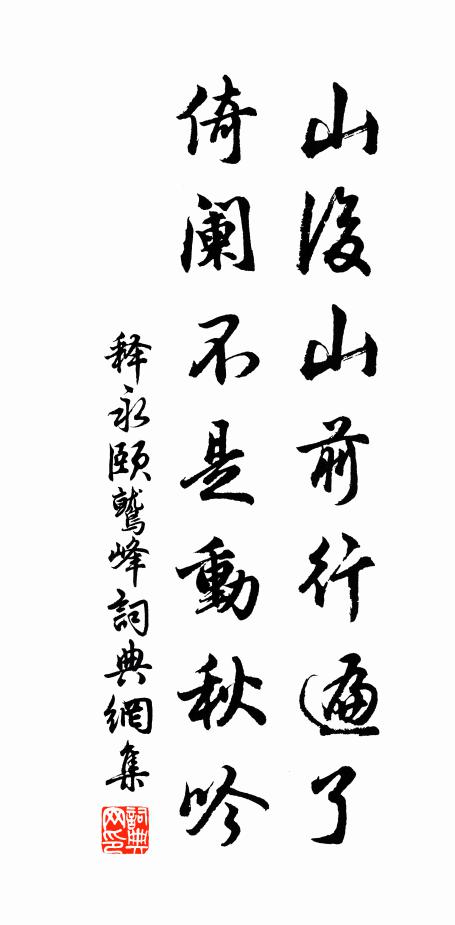 山後山前行遍了
倚阑不是動秋吟
释永颐鹫峰詞典網集
詞典网印